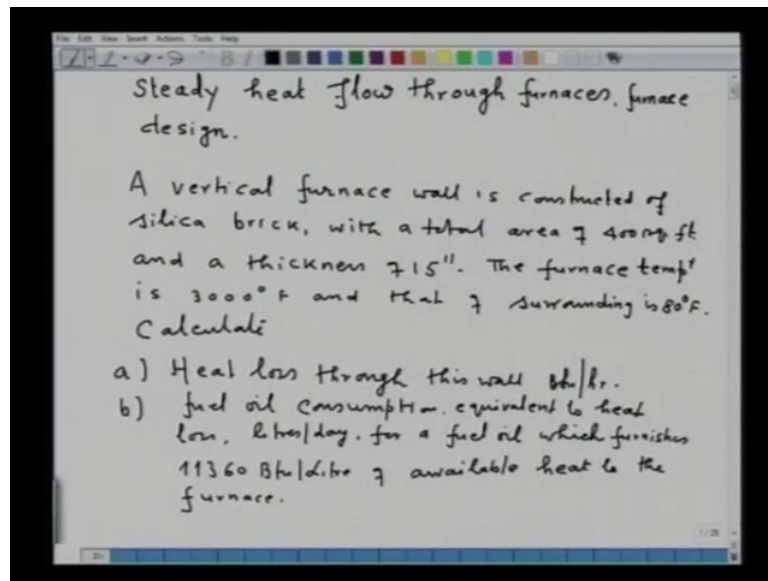 File Edit View Insert Actions Tools Help
Steady heat flow through furnaces. furnace
design.
A vertical furnace wall is constructed of
silica brick, with a total area of 400 sq ft
and a thickness of 15". The furnace temp^r
is 3000°F and that of surrounding is 80°F.
Calculate
a) Heat loss through this wall Btu/hr.
b) fuel oil consumption. equivalent to heat
loss, litres/day. for a fuel oil which furnishes
11360 Btu/Litre of available heat to the
furnace.
1/25